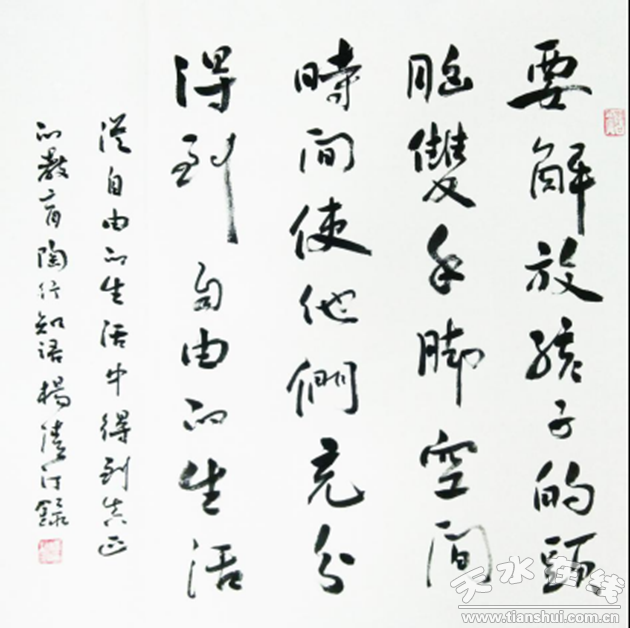 要解放孩子的頭
腦雙手脚空間
時間使他們充分
得到自由的生活
從自由的生活中得到真正
的教育陶行知語楊清汀錄
天水在线
www.tianshui.com.cn